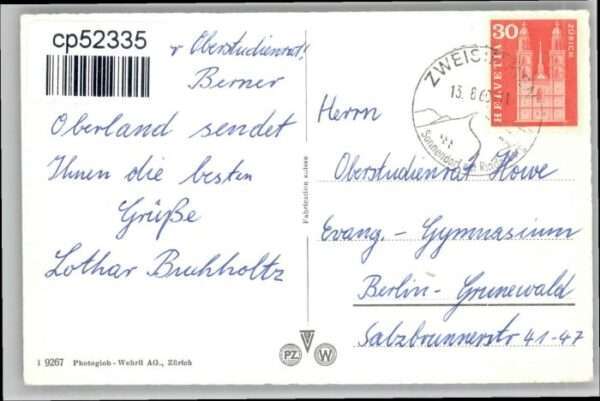 cp52335
r Oberstudienrat!
Berner
Oberland sendet
Ihnen die besten
Grüße
Lothar Buchholtz
1 9267 Photoglob-Wehrli AG., Zürich
Fabrication suisse
PZ W
30
HELVETIA
ZÜRICH
13. 8. 6
Sonnendorf
Herrn
Oberstudienrat Howe
Evang.- Gymnasium
Berlin- Grunewald
Salzbrunnerstr 41-47